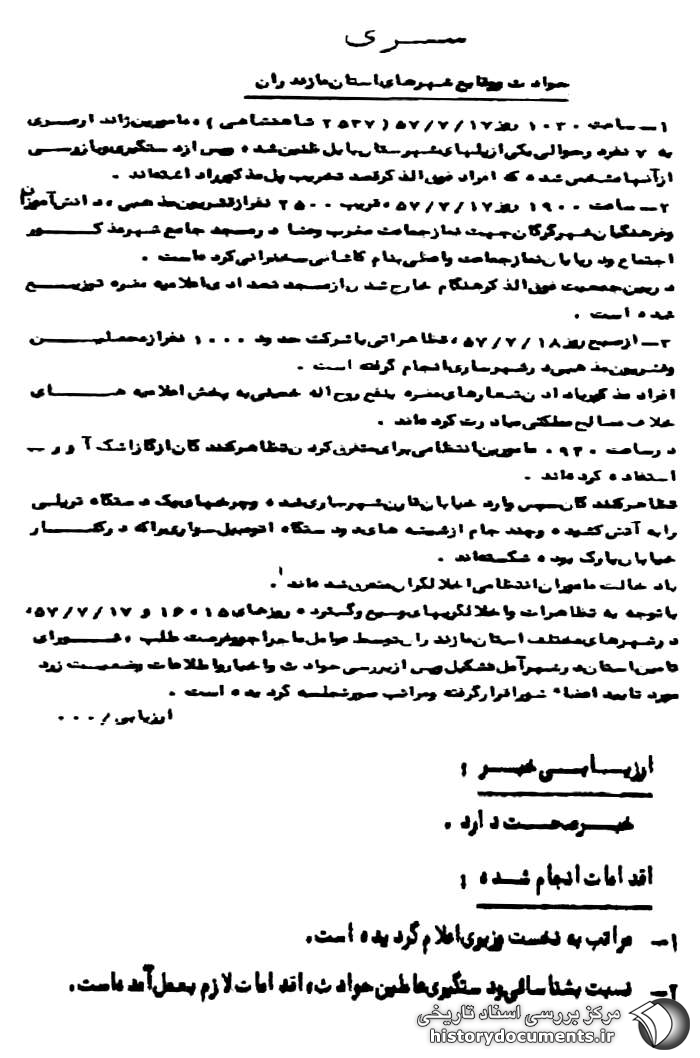 سری
حوادث و وقایع شهرهای استان مازندران
۱ـ ساعت ۱۰۳۰ روز ۵۷/۷/۱۷ (۲۵۳۷ شاهنشاهی) مامورین ژاندارمری
به ۷ نفر در حوالی یکی از پلهای شهرستان بابل ظنین شده و پس از دستگیری و بازرسی
از آنها مشخص شده که افراد فوق الذکر قصد تخریب پل مذکور را داشته‌اند .
۲ـ ساعت ۱۹۰۰ روز ۵۷/۷/۱۷، قریب ۲۵۰۰ نفر از قشریون مذهبی، دانش آموزان
و فرهنگیان شهر گرگان جهت نماز جماعت مغرب و عشا در مسجد جامع شهر مذکور
اجتماع و در پایان نماز جماعت واعظی بنام کاشانی سخنرانی کرده است .
در بین جمعیت فوق الذکر هنگام خارج شدن از مسجد تعدادی اعلامیه مضره توزیع
شده است .
۳ـ از صبح روز ۵۷/۷/۱۸، تظاهراتی با شرکت حدود ۱۰۰۰ نفر از محصلین
و قشریون مذهبی در شهر ساری انجام گرفته است .
افراد مذکور با دادن شعارهای مضره بنفع روح اله خمینی به پخش اعلامیه های
خلاف مصالح مملکتی مبادرت کرده‌اند .
در ساعت ۰۹۳۰ مامورین انتظامی برای متفرق کردن تظاهرکنندگان از گاز اشک آور
استفاده کرده‌اند .
تظاهرکنندگان سپس وارد خیابان قارن شهر ساری شده و چرخهای یک دستگاه تریلی
را به آتش کشیده و چند جام از شیشه های دو دستگاه اتومبیل سواری را که در کنار
خیابان پارک بوده شکسته‌اند .
با دخالت ماموران انتظامی اخلالگران متفرق شده‌اند .
با توجه به تظاهرات و اخلالگریهای وسیع و گسترده روزهای ۱۵، ۱۶ و ۵۷/۷/۱۷،
در شهرهای مختلف استان مازندران توسط عوامل ماجراجو و فرصت طلب، شورای
تامین استان در شهر آمل تشکیل و پس از بررسی حوادث و اخبار و اطلاعات وضعیت زرد
مورد تایید اعضاء شورا قرار گرفته و مراتب صورتجلسه گردیده است .
ارزیابی/...
ارزیابی خبر :
خبر صحت دارد .
اقدامات انجام شده :
۱ـ مراتب به نخست وزیری اعلام گردیده است.
۲ـ نسبت بشناسائی و دستگیری عاملین حوادث، اقدامات لازم بعمل آمده است.
مرکز بررسی اسناد تاریخی
historydocuments.ir